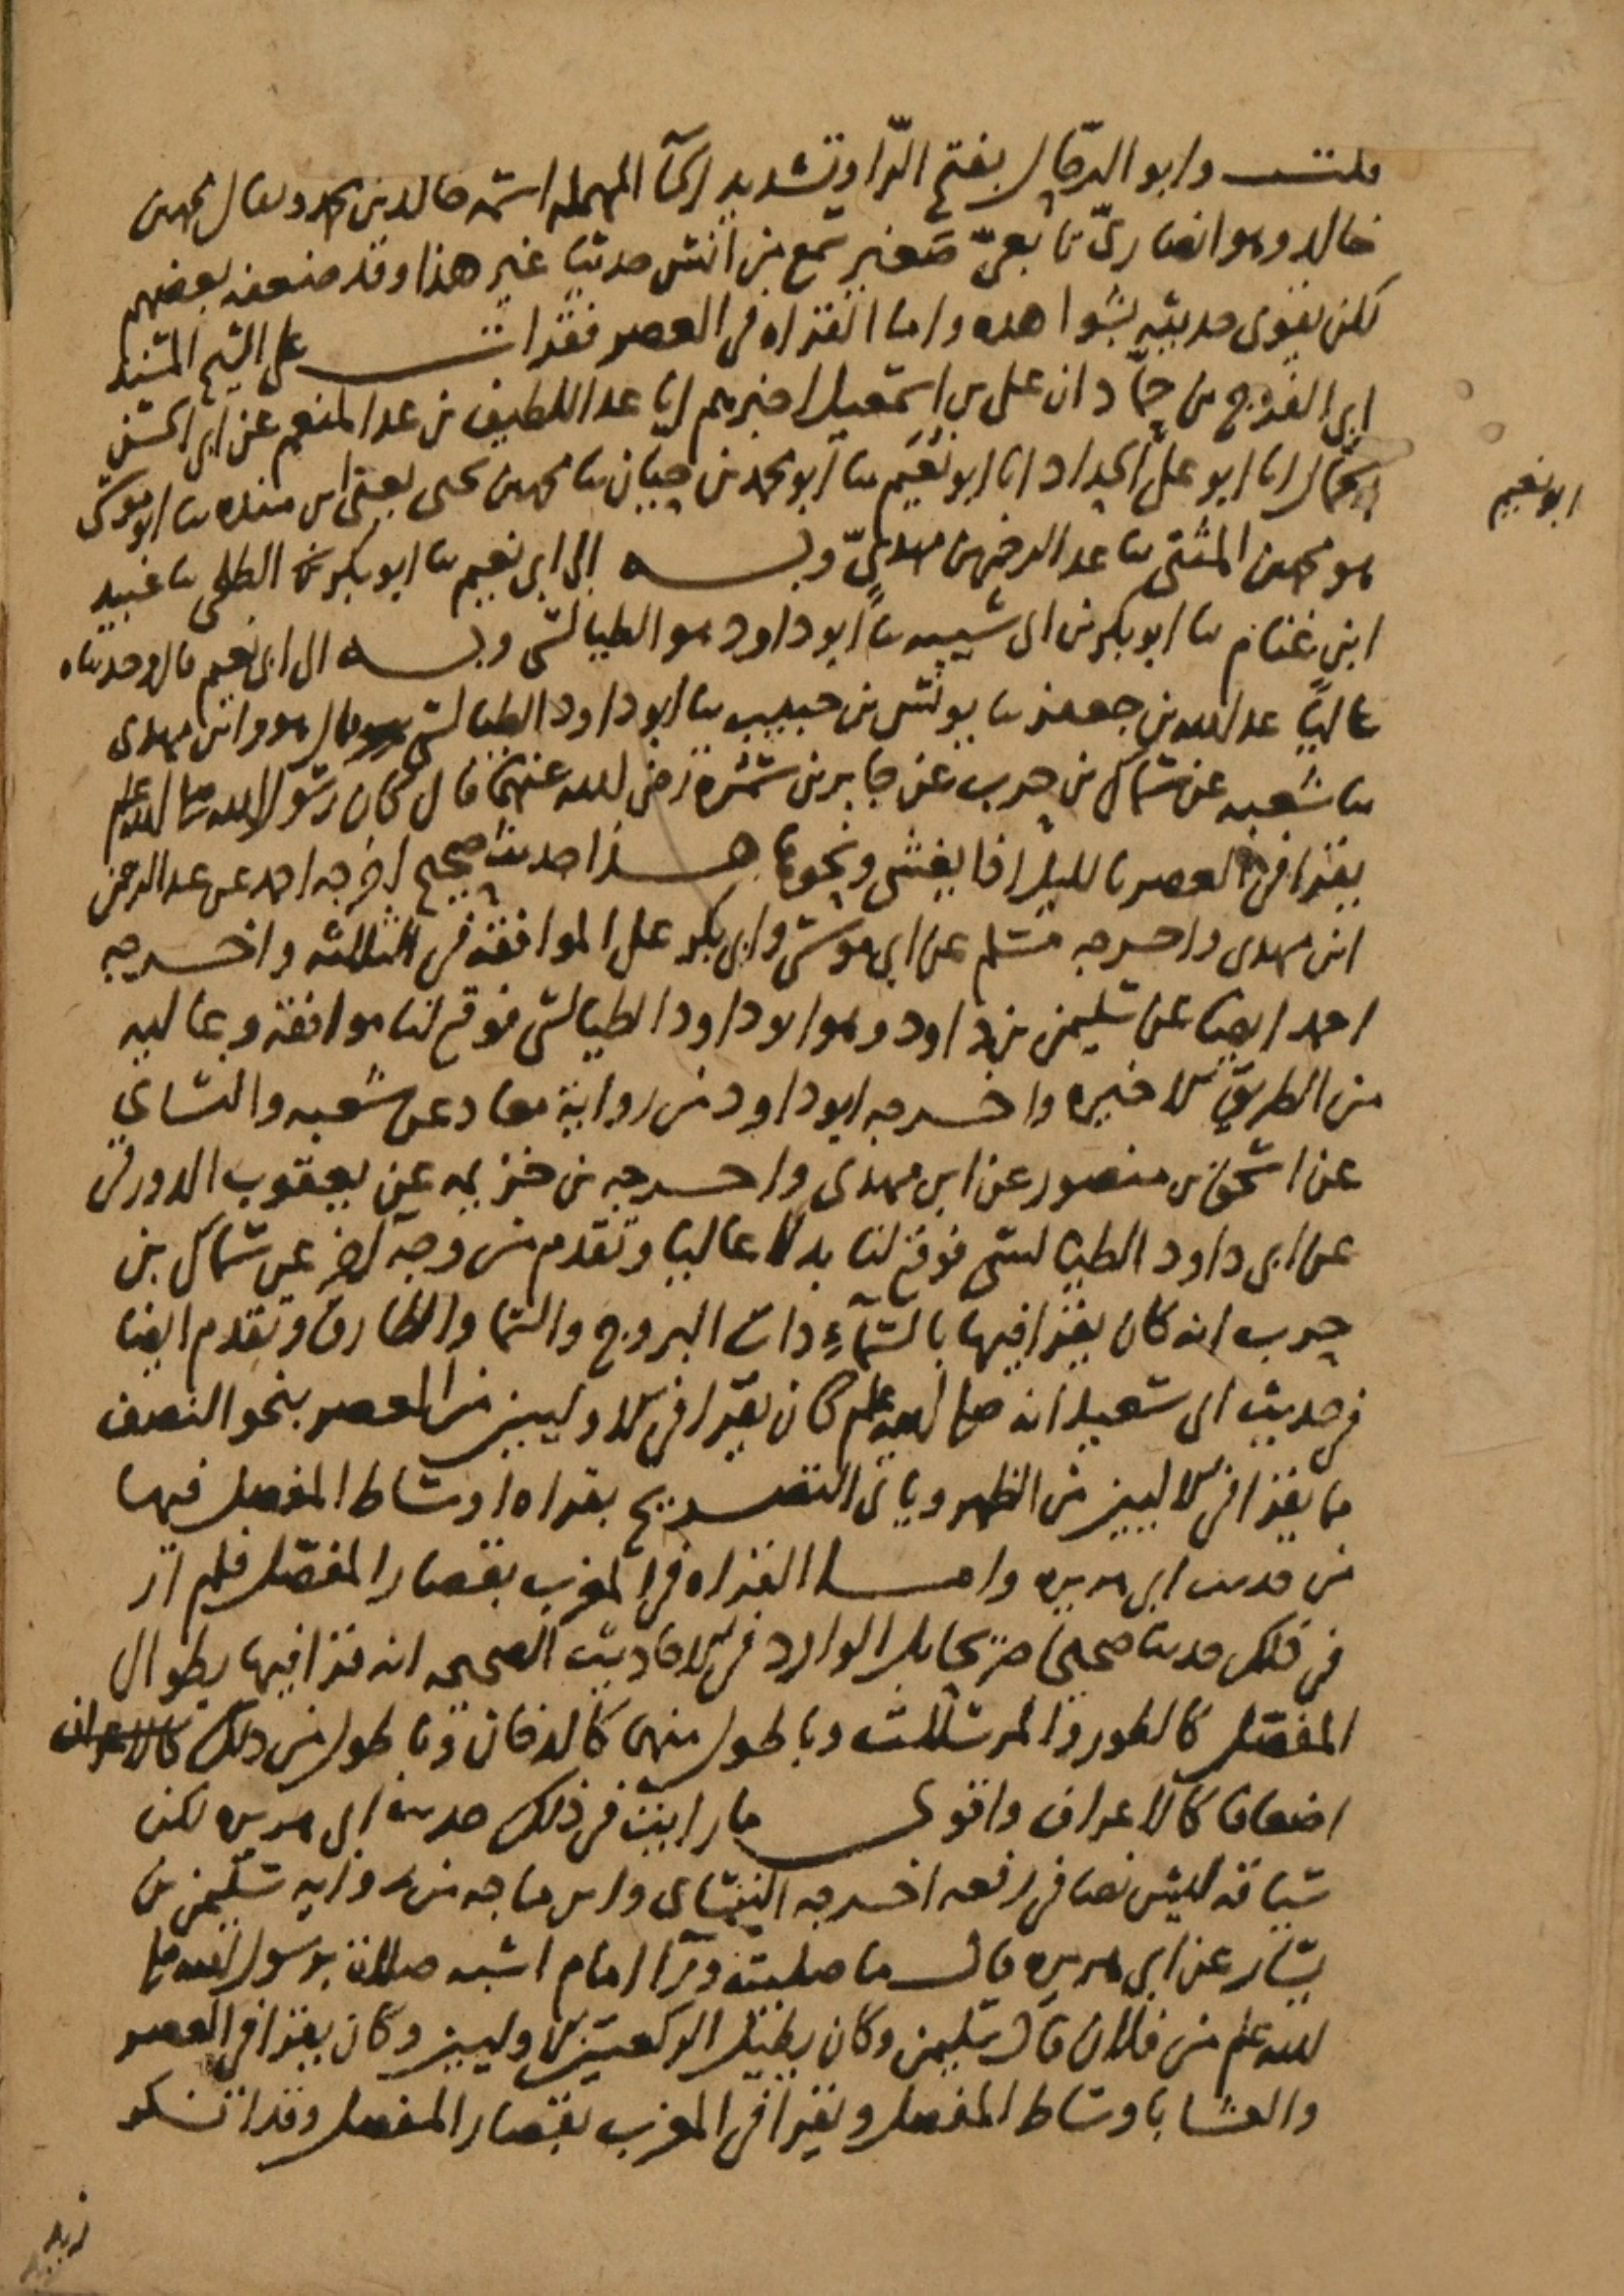 قلت وابو الرحال بفتح الرا وتشديد الحآ المهمله اسمه خالد بن محمد ويقال محمد بن
خالد وهو انصاري تابعي صغير سمع من انس حديثا غير هذا وقد ضعفه بعضهم
لكن يقوى حديثه بشواهده واما القراه في العصر فقرات على الشيخ المسند
ابي الفرج بن حماد ان علي بن اسمعيل اخبرهم انا عبد اللطيف بن عبد المنعم عن ابي الحسن
الجمال انا ابو علي الحداد انا ابو نعيم ثنا ابو محمد بن حيان ثنا محمد بن يحيى يعني ابن منده ثنا ابو موسى
هو محمد بن المثنى ثنا عبد الرحمن بن مهدي وبه الى ابي نعيم ثنا ابو بكر الطلحي ثنا عبيد
ابن غنام ثنا ابو بكر بن ابي شيبه ثنا ابو داود هو الطيالسي وبه الى ابي نعيم قال وحدثناه
عاليا عبد الله بن جعفر ثنا يونس بن حبيب ثنا ابو داود الطيالسي قال هو وابن مهدي
ثنا شعبه عن سماك بن حرب عن جابر بن سمره رضي الله عنهما قال كان رسول الله صلى الله عليه وسلم
يقرا في العصر بالليل اذا يغشى ونحوها هذا حديث صحيح اخرجه احمد عن عبد الرحمن
ابن مهدي واخرجه مسلم عن ابي موسى وابي بكر على الموافقه في الثلثه واخرجه
احمد ايضا عن سليمن بن داود وهو ابو داود الطيالسي فوقع لنا موافقه وعاليه
من الطريق الاخيره واخرجه ابو داود من رواية معاذ عن شعبه والنساي
عن اسحق بن منصور عن ابن مهدي واخرجه بن خزيمه عن يعقوب الدورقي
عن ابي داود الطيالسي فوقع لنا بدلا عاليا وتقدم من وجه آخر عن سماك بن
حرب انه كان يقرا فيها بالسمآء ذات البروج والسما والطارق وتقدم ايضا
في حديث ابي سعيد انه صلى الله عليه وسلم كان يقرا في الاوليين من العصر بنحو النصف
مما يقرا في الاوليين من الظهر وياتي التصريح بقراه اوساط المفصل فيها
من حديث ابي هريره واما القراه في المغرب بقصار المفصل فلم ار
في ذلك حديثا صحيحا صريحا بل الوارد في الاحاديث الصحيحه انه قرا فيها بطوال
المفصل كالطور والمرسلات وباطول منها كالدخان وباطول من ذلك كالاعراف
اضعافا كالاعراف واقوى ما رايت في ذلك حديث ابي هريره لكن
سياقه ليس نصا في رفعه اخرجه النساي وابن ماجه من روايه سليمن بن
يسار عن ابي هريره قال ما صليت ورآ امام اشبه صلاة برسول الله صلى
الله عليه وسلم من فلان قال سليمن وكان يطيل الركعتين الاوليين وكان يقرا في العصر
والعشا باوساط المفصل ويقرا في المغرب بقصار المفصل وقد انكر
ابو نعيم